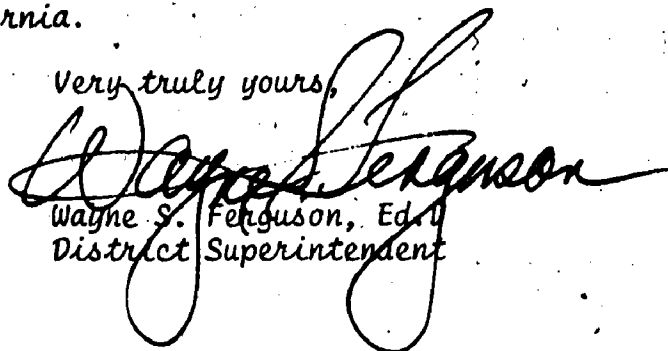 rnia.
Very truly yours,
Wayne S. Ferguson
Wayne S. Ferguson, Ed.D
District Superintendent